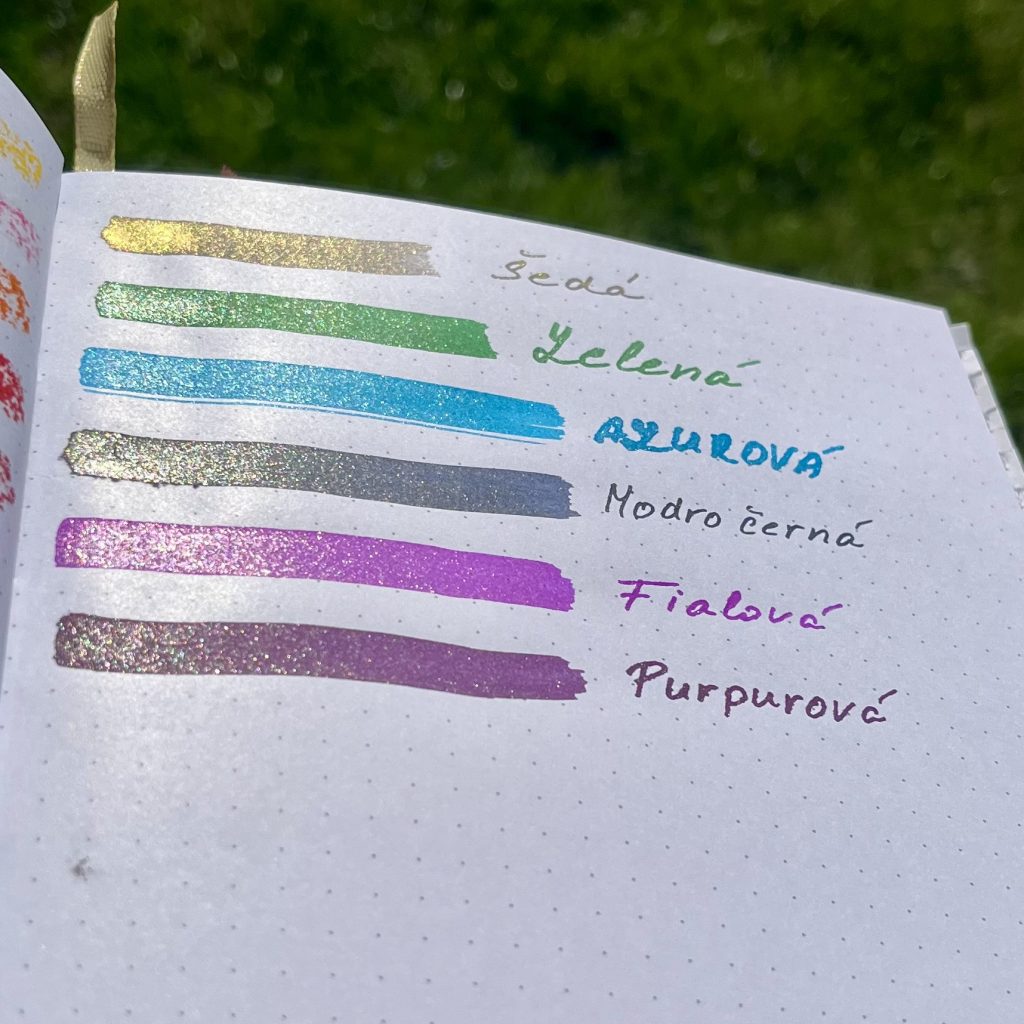 šedá
Zelená
AZUROVÁ
Modro černá
Fialová
Purpurová